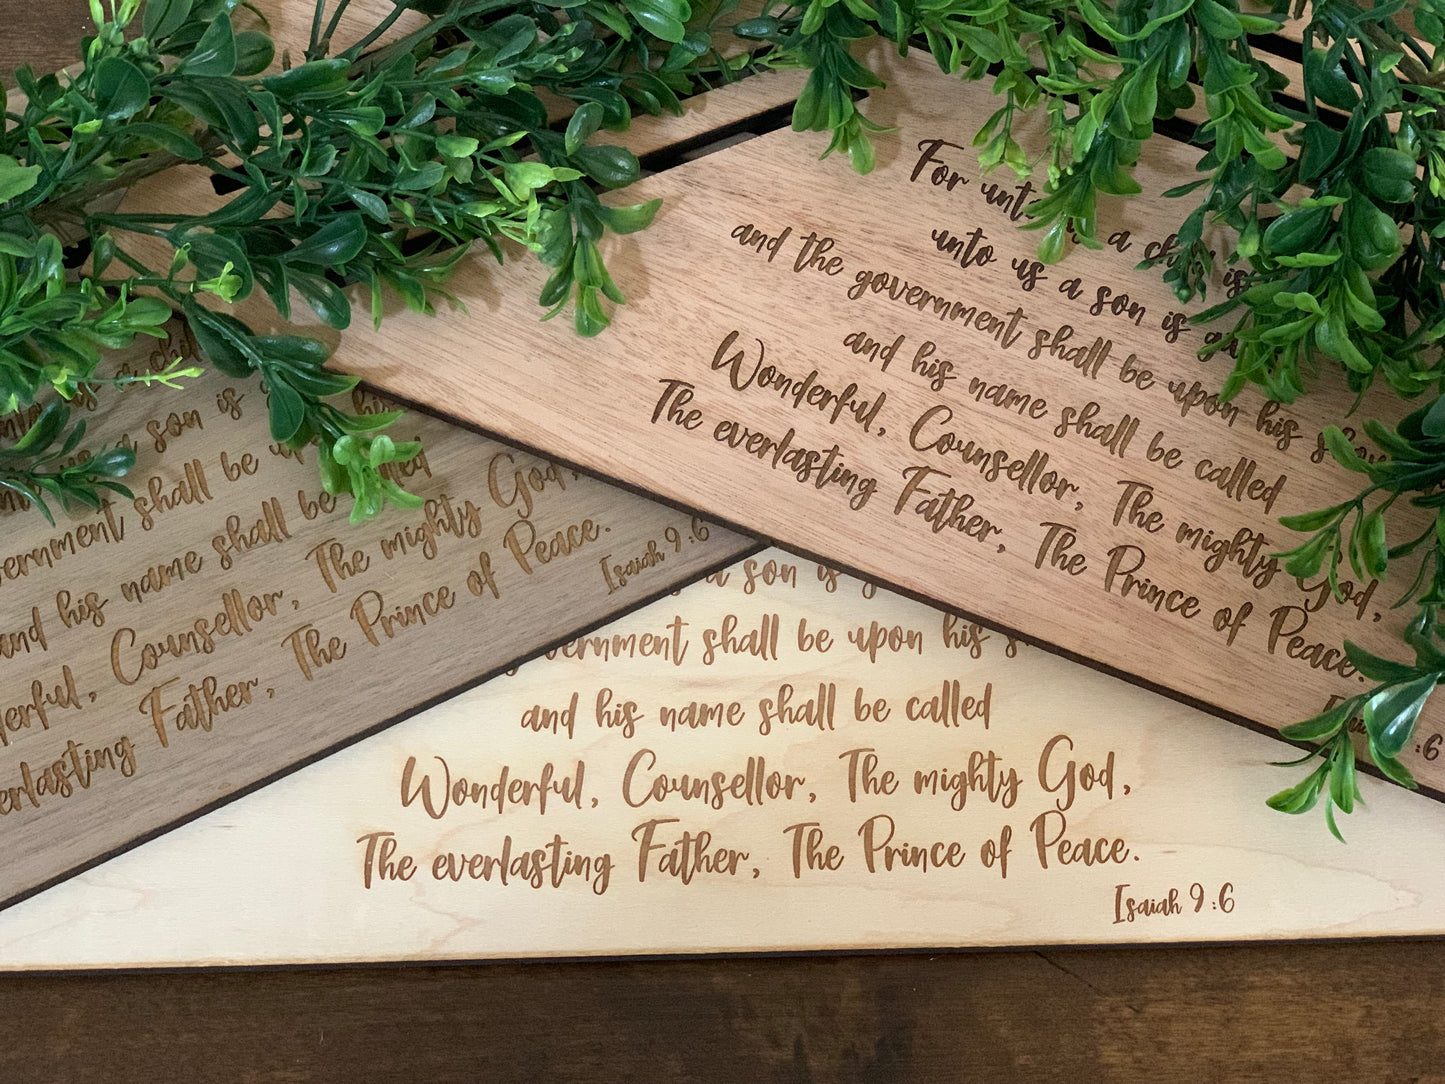 For
unto us a son is
and the government shall be upon his
and his name shall be called
Wonderful, Counsellor, The mighty God,
The everlasting Father, The Prince of Peace.
:6
son is
shall be his
and his name shall be called
Counsellor, The mighty God,
Father, The Prince of Peace.
Isaiah 9:6
a son is
shall be upon his
and his name shall be called
Wonderful, Counsellor, The mighty God,
The everlasting Father, The Prince of Peace.
Isaiah 9:6